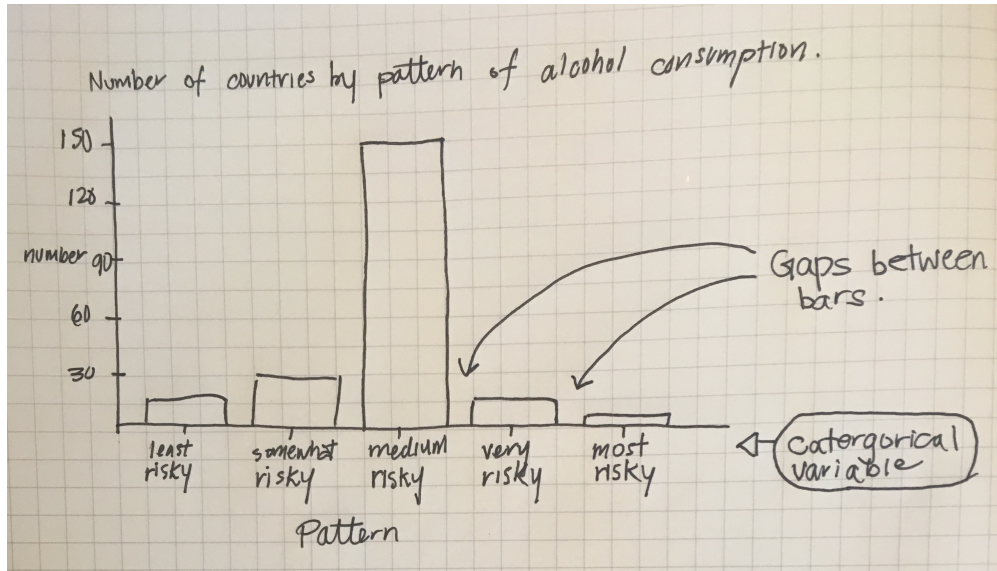 Number of countries by pattern of alcohol consumption.
150
120
number 90
60
30
least
risky
somewhat
risky
medium
risky
very
risky
most
risky
Pattern
Gaps between
bars.
catergorical
variable